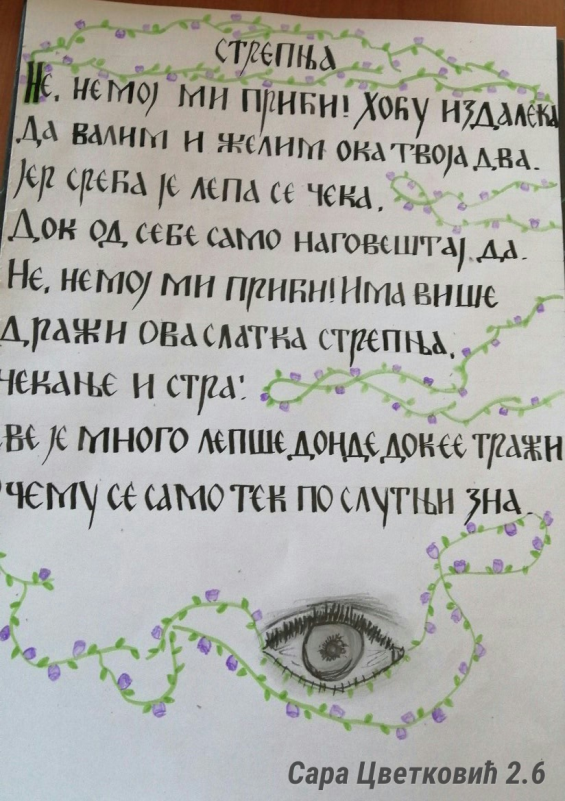 СТРЕПЊА
НЕ, НЕМОЈ МИ ПРИЋИ! ХОЋУ ИЗДАЛЕКА
ДА ВАЛИМ И ЖЕЛИМ ОКА ТВОЈА ДВА.
ЈЕР СРЕЋА ЈЕ ЛЕПА СЕ ЧЕКА,
ДОК ОД СЕБЕ САМО НАГОВЕШТАЈ ДА.
НЕ, НЕМОЈ МИ ПРИЋИ! ИМА ВИШЕ
ДРАЖИ ОВА СЛАТКА СТРЕПЊА,
ЧЕКАЊЕ И СТРА'.
ВЕ ЈЕ МНОГО ЛЕПШЕ ДОНДЕ ДОК СЕ ТРАЖИ
ЧЕМУ СЕ САМО ТЕК ПО СЛУТЊИ ЗНА.
Сара Цветковић 2.6